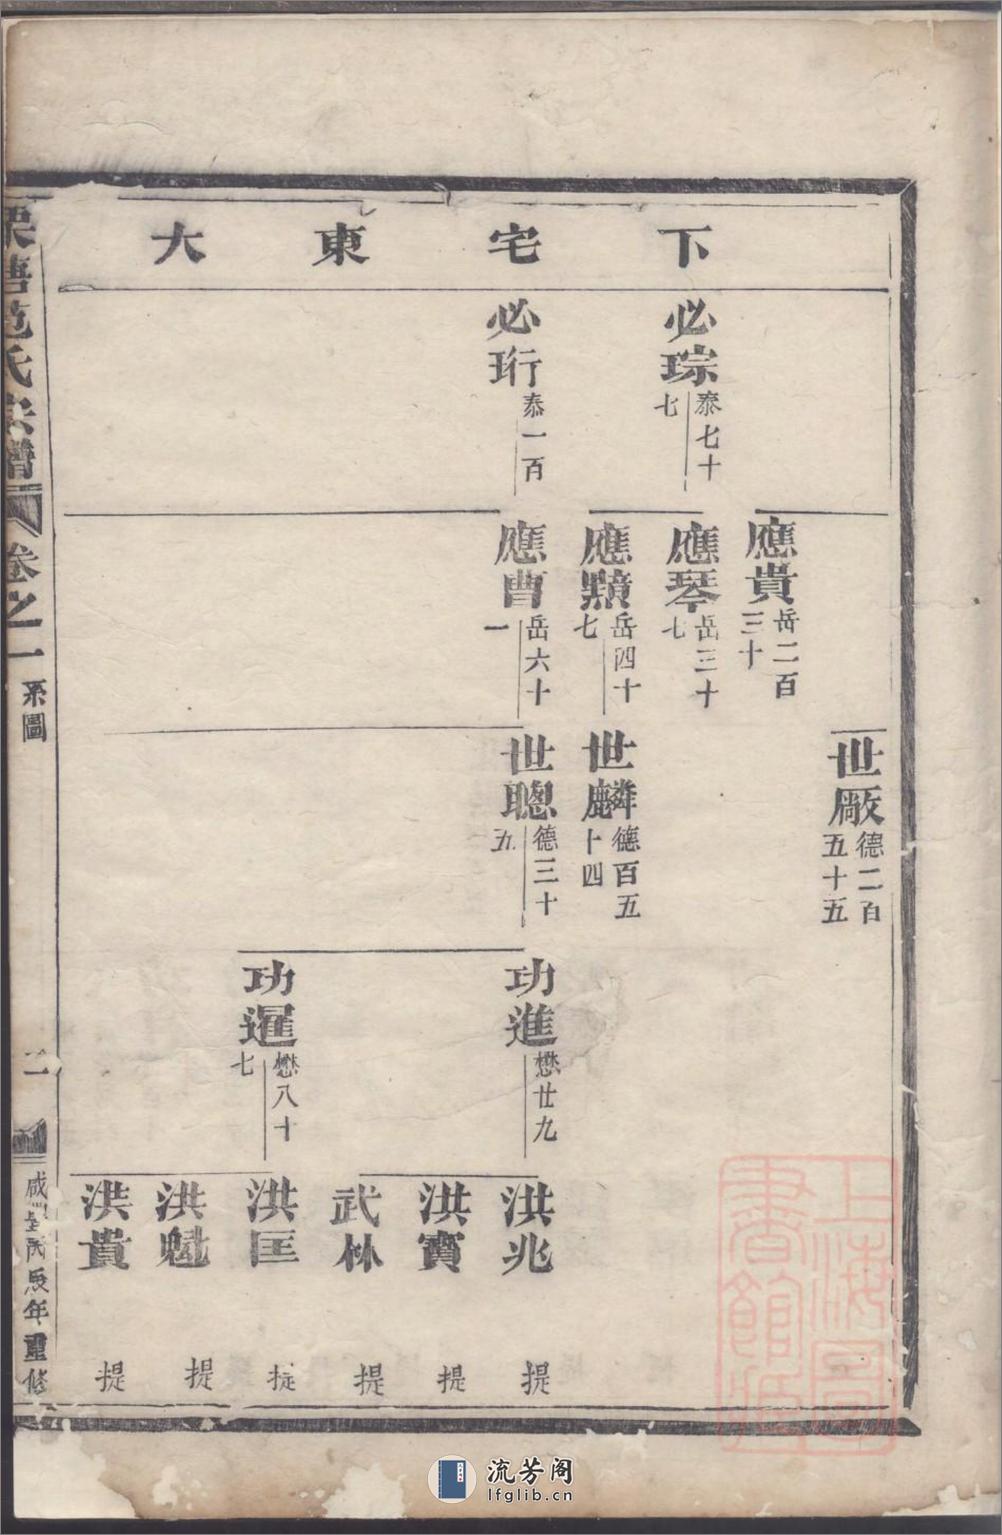 下宅東大
必琮
泰七十
七
必珩
泰一百
應貴
岳二百
三十
應琴
岳三十
七
應顥
岳四十
七
應曹
岳六十
一
世厰
德二百
五十五
世麟
德百五
十四
世聰
德三十
五
功進
懋廿九
功暹
懋八十
七
洪兆
提
洪寶
提
武林
提
洪匡
提
洪魁
提
洪貴
提
氏宗譜
卷之一
系圖
二
年重修
上海圖
書館藏
流芳阁
lfglib.cn